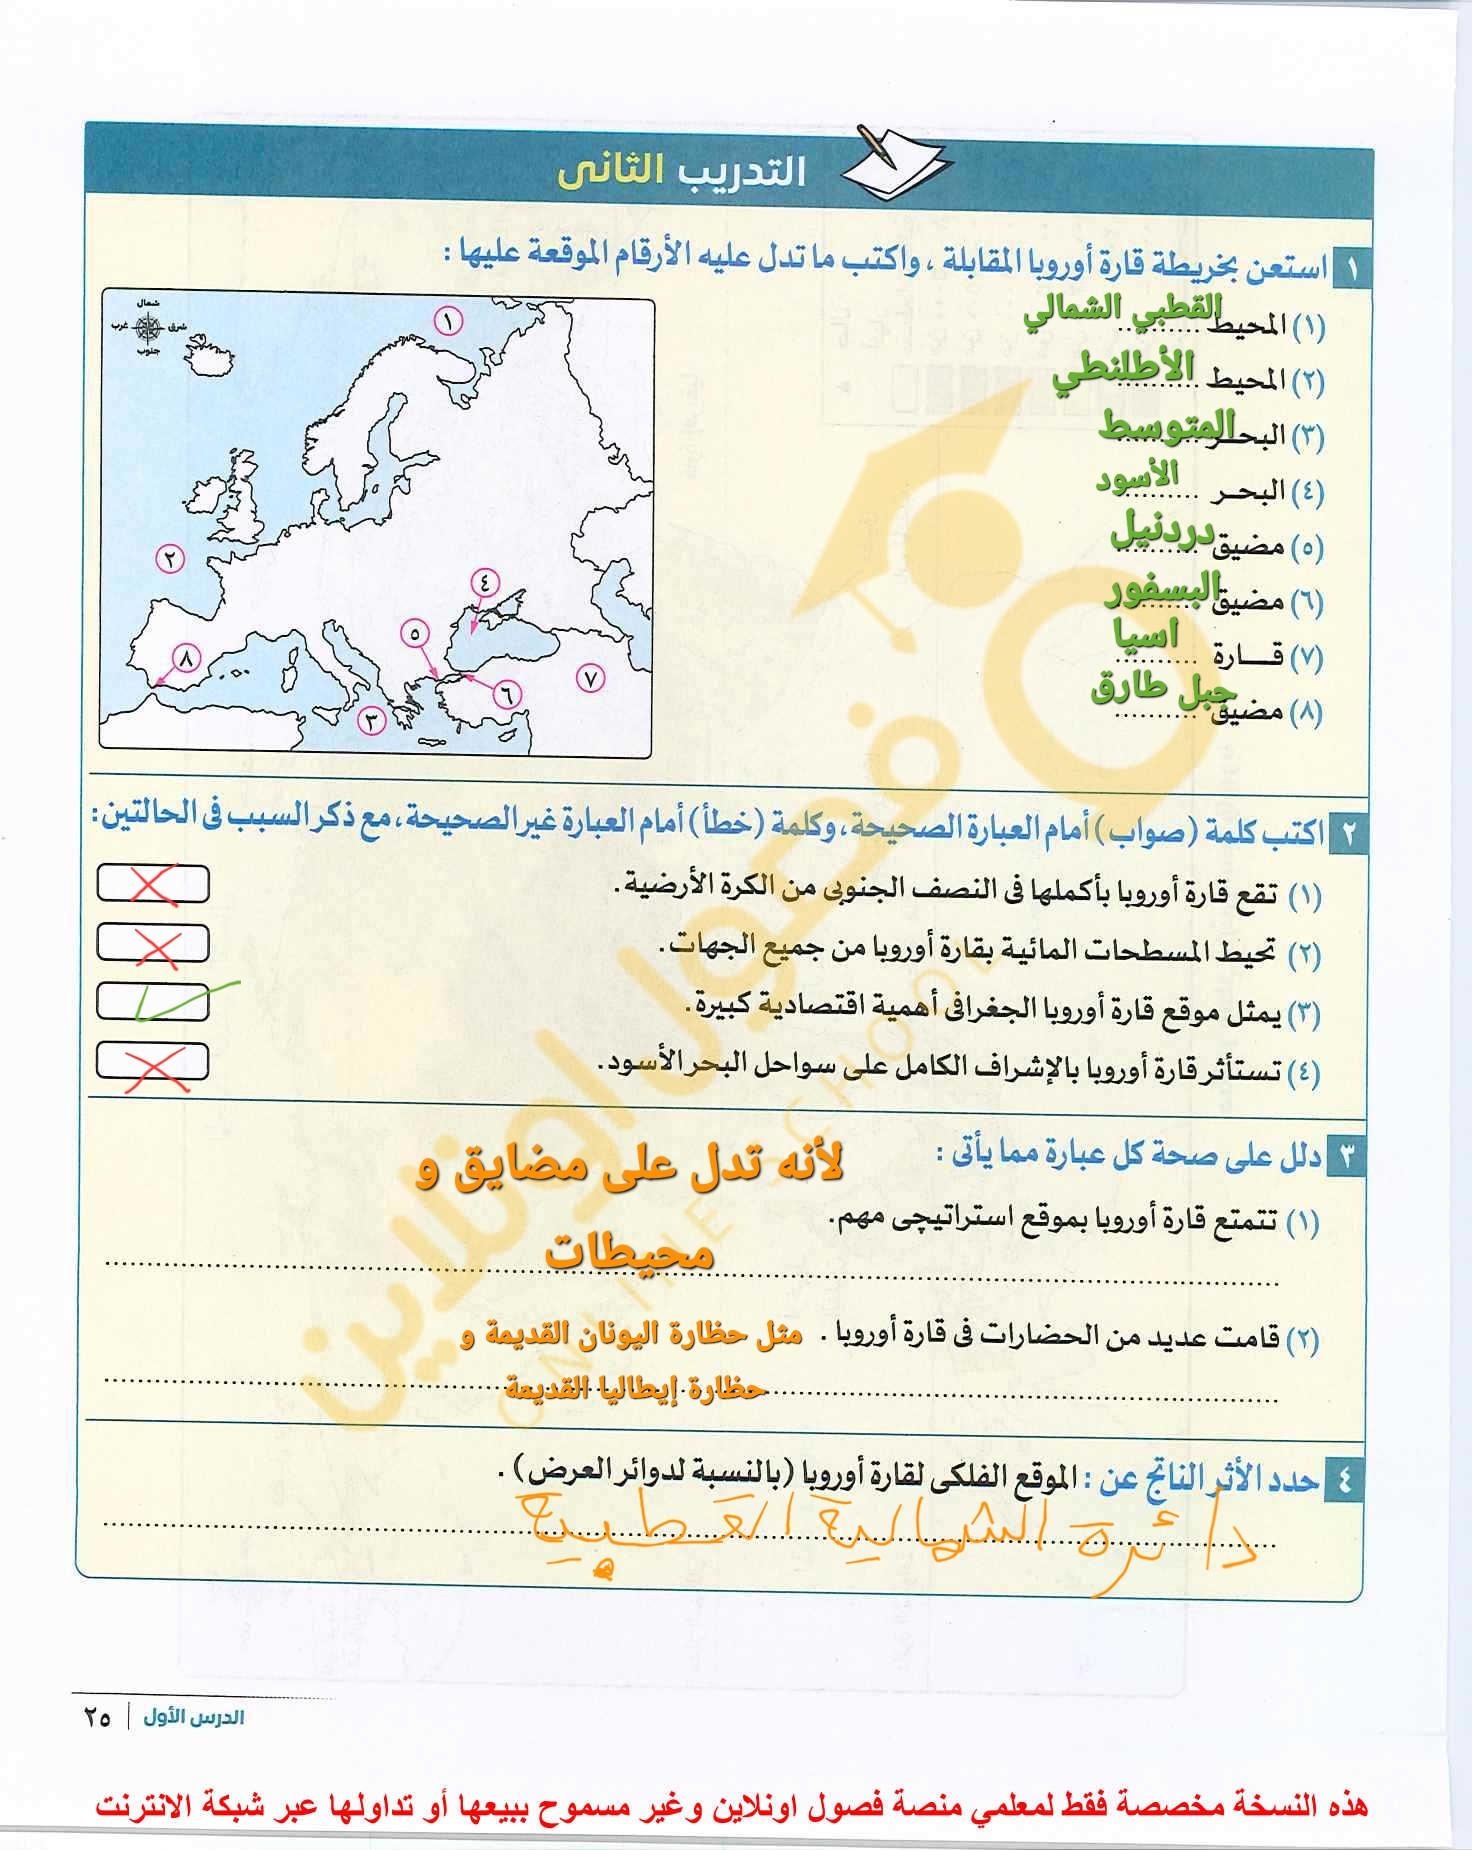 التدريب الثانى
١ استعن بخريطة قارة أوروبا المقابلة ، واكتب ما تدل عليه الأرقام الموقعة عليها :
(١) المحيط القطبي الشمالي
(٢) المحيط الأطلنطي
(٣) البحـر المتوسط
(٤) البحـر الأسود
(٥) مضيق دردنيل
(٦) مضيق البسفور
(٧) قــارة اسيا
(٨) مضيق جبل طارق
شمال
شرق
غرب
جنوب
١
٢
٤
٥
٨
٧
٦
٣
٢ اكتب كلمة (صواب) أمام العبارة الصحيحة، وكلمة (خطأ) أمام العبارة غير الصحيحة، مع ذكر السبب فى الحالتين :
(١) تقع قارة أوروبا بأكملها فى النصف الجنوبى من الكرة الأرضية.
(٢) تحيط المسطحات المائية بقارة أوروبا من جميع الجهات.
(٣) يمثل موقع قارة أوروبا الجغرافى أهمية اقتصادية كبيرة.
(٤) تستأثر قارة أوروبا بالإشراف الكامل على سواحل البحر الأسود.
٣ دلل على صحة كل عبارة مما يأتى :
لأنه تدل على مضايق و
(١) تتمتع قارة أوروبا بموقع استراتيچى مهم.
محيطات
(٢) قامت عديد من الحضارات فى قارة أوروبا . مثل حظارة اليونان القديمة و
حظارة إيطاليا القديمة
٤ حدد الأثر الناتج عن : الموقع الفلكى لقارة أوروبا (بالنسبة لدوائر العرض) .
دائرة الشمالية القطبية
فصول اونلاين
ONLINE SCHOOL
الدرس الأول | ٢٥
هذه النسخة مخصصة فقط لمعلمي منصة فصول اونلاين وغير مسموح ببيعها أو تداولها عبر شبكة الانترنت